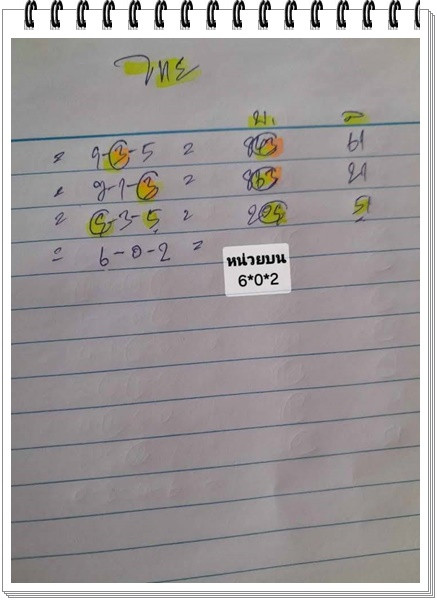 ไทย
บ. ล
= 9-3-5 = 843 61
= 9-1-3 = 863 21
= 5-3-5 = 205 51
= 6-0-2 =
หน่วยบน
6*0*2